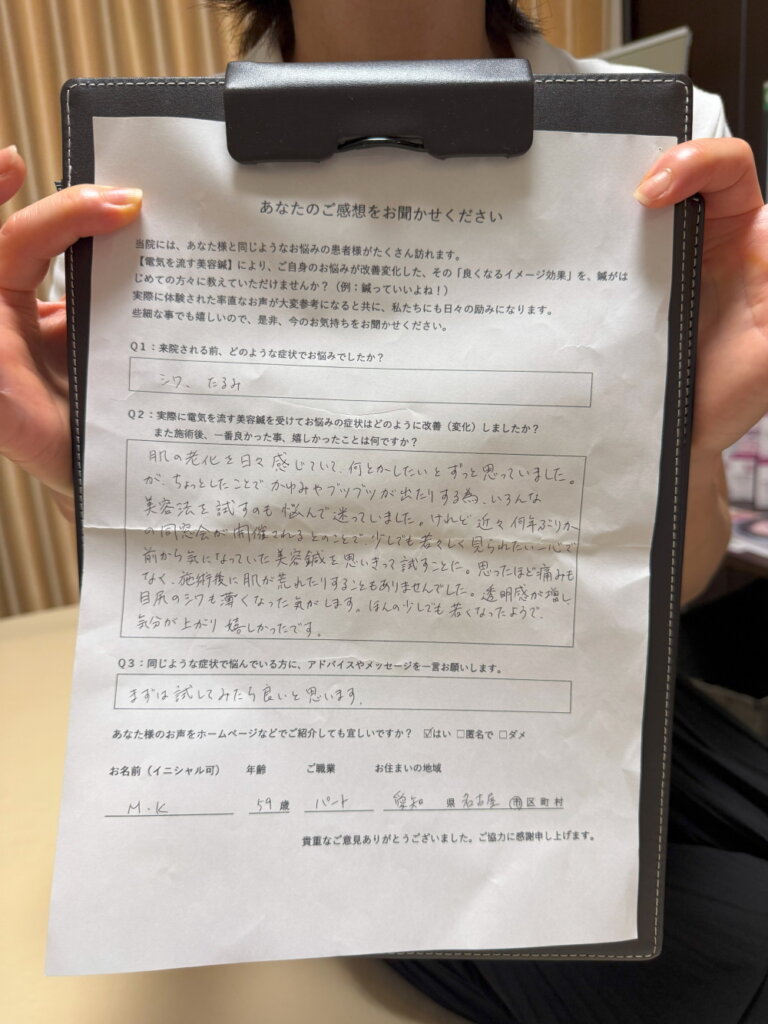 あなたのご感想をお聞かせください
当院には、あなた様と同じようなお悩みの患者様がたくさん訪れます。
【電気を流す美容鍼】により、ご自身のお悩みが改善変化した、その「良くなるイメージ効果」を、鍼がは
じめての方々に教えていただけませんか?(例:鍼っていいよね!)
実際に体験された率直なお声が大変参考になると共に、私たちにも日々の励みになります。
些細な事でも嬉しいので、是非、今のお気持ちをお聞かせください。
Q1:来院される前、どのような症状でお悩みでしたか?
シワ、たるみ
Q2:実際に電気を流す美容鍼を受けてお悩みの症状はどのように改善(変化)しましたか?
また施術後、一番良かった事、嬉しかったことは何ですか?
肌の老化を日々感じていて、何とかしたいとずっと思っていました。
が、ちょっとしたことでかゆみやブツブツが出たりする為、いろんな
美容法を試すのも悩んで迷っていました。けれど近々何年ぶりか
の同窓会が開催されるとのことで、少しでも若々しく見られたい一心で
前から気になっていた美容鍼を思いきって試すことに。思ったほど痛みも
なく、施術後に肌が荒れたりすることもありませんでした。透明感が増し、
目尻のシワも薄くなった気がします。ほんの少しでも若くなったようで、
気分が上がり嬉しかったです。
Q3:同じような症状で悩んでいる方に、アドバイスやメッセージを一言お願いします。
まずは試してみたら良いと思います。
あなた様のお声をホームページなどでご紹介しても宜しいですか? ☑はい ☐匿名で ☐ダメ
お名前(イニシャル可) 年齢 ご職業 お住まいの地域
M.K 59歳 パート 愛知県名古屋市区町村
貴重なご意見ありがとうございました。ご協力に感謝申し上げます。